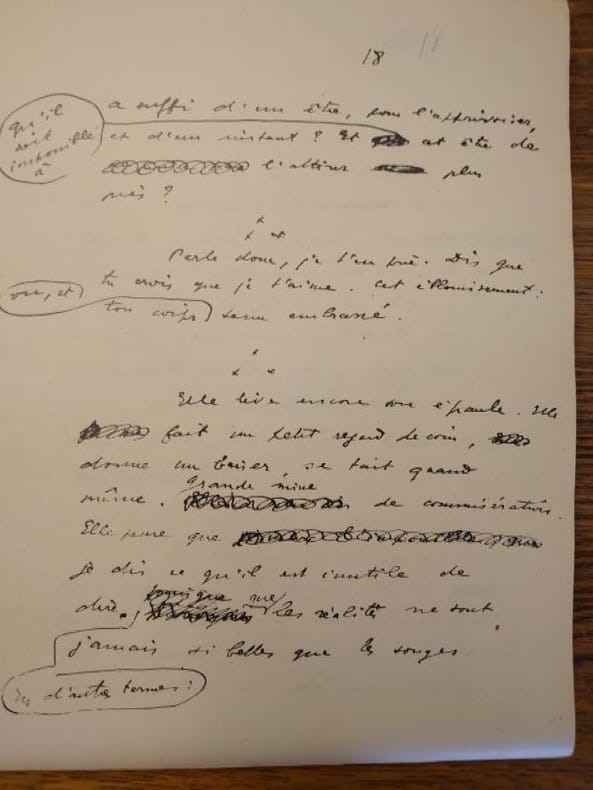 18 18
a suffi d'un être, pour l'apprivoiser,
qu'il
soit
impossible
à
et d'un instant ? Et cet être de
l'attirer plus
près ?
Parle donc, je t'en prie. Dis que
tu crois que je t'aime. Cet éblouissement :
vu, et
ton corps, senu embrassé.
Elle lève encore une épaule. Elle
fait un petit regard de coin,
donne un baiser, se tait quand
même. Grande mine de commisération.
Elle pense que
je dis ce qu'il est inutile de
dire, puisque les réalités ne sont
jamais si belles que les songes
En d'autres termes :